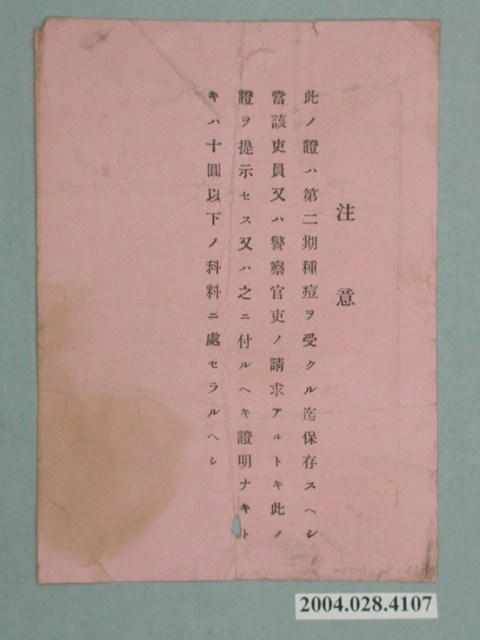 注意
此ノ證ハ第二期種痘ヲ受クル迄保存スヘシ
當該吏員又ハ警察官吏ノ請求アルトキ此ノ
證ヲ提示セス又ハ之ニ付ルヘキ證明ナキト
キハ十圓以下ノ科料ニ處セラルヘシ
2004.028.4107